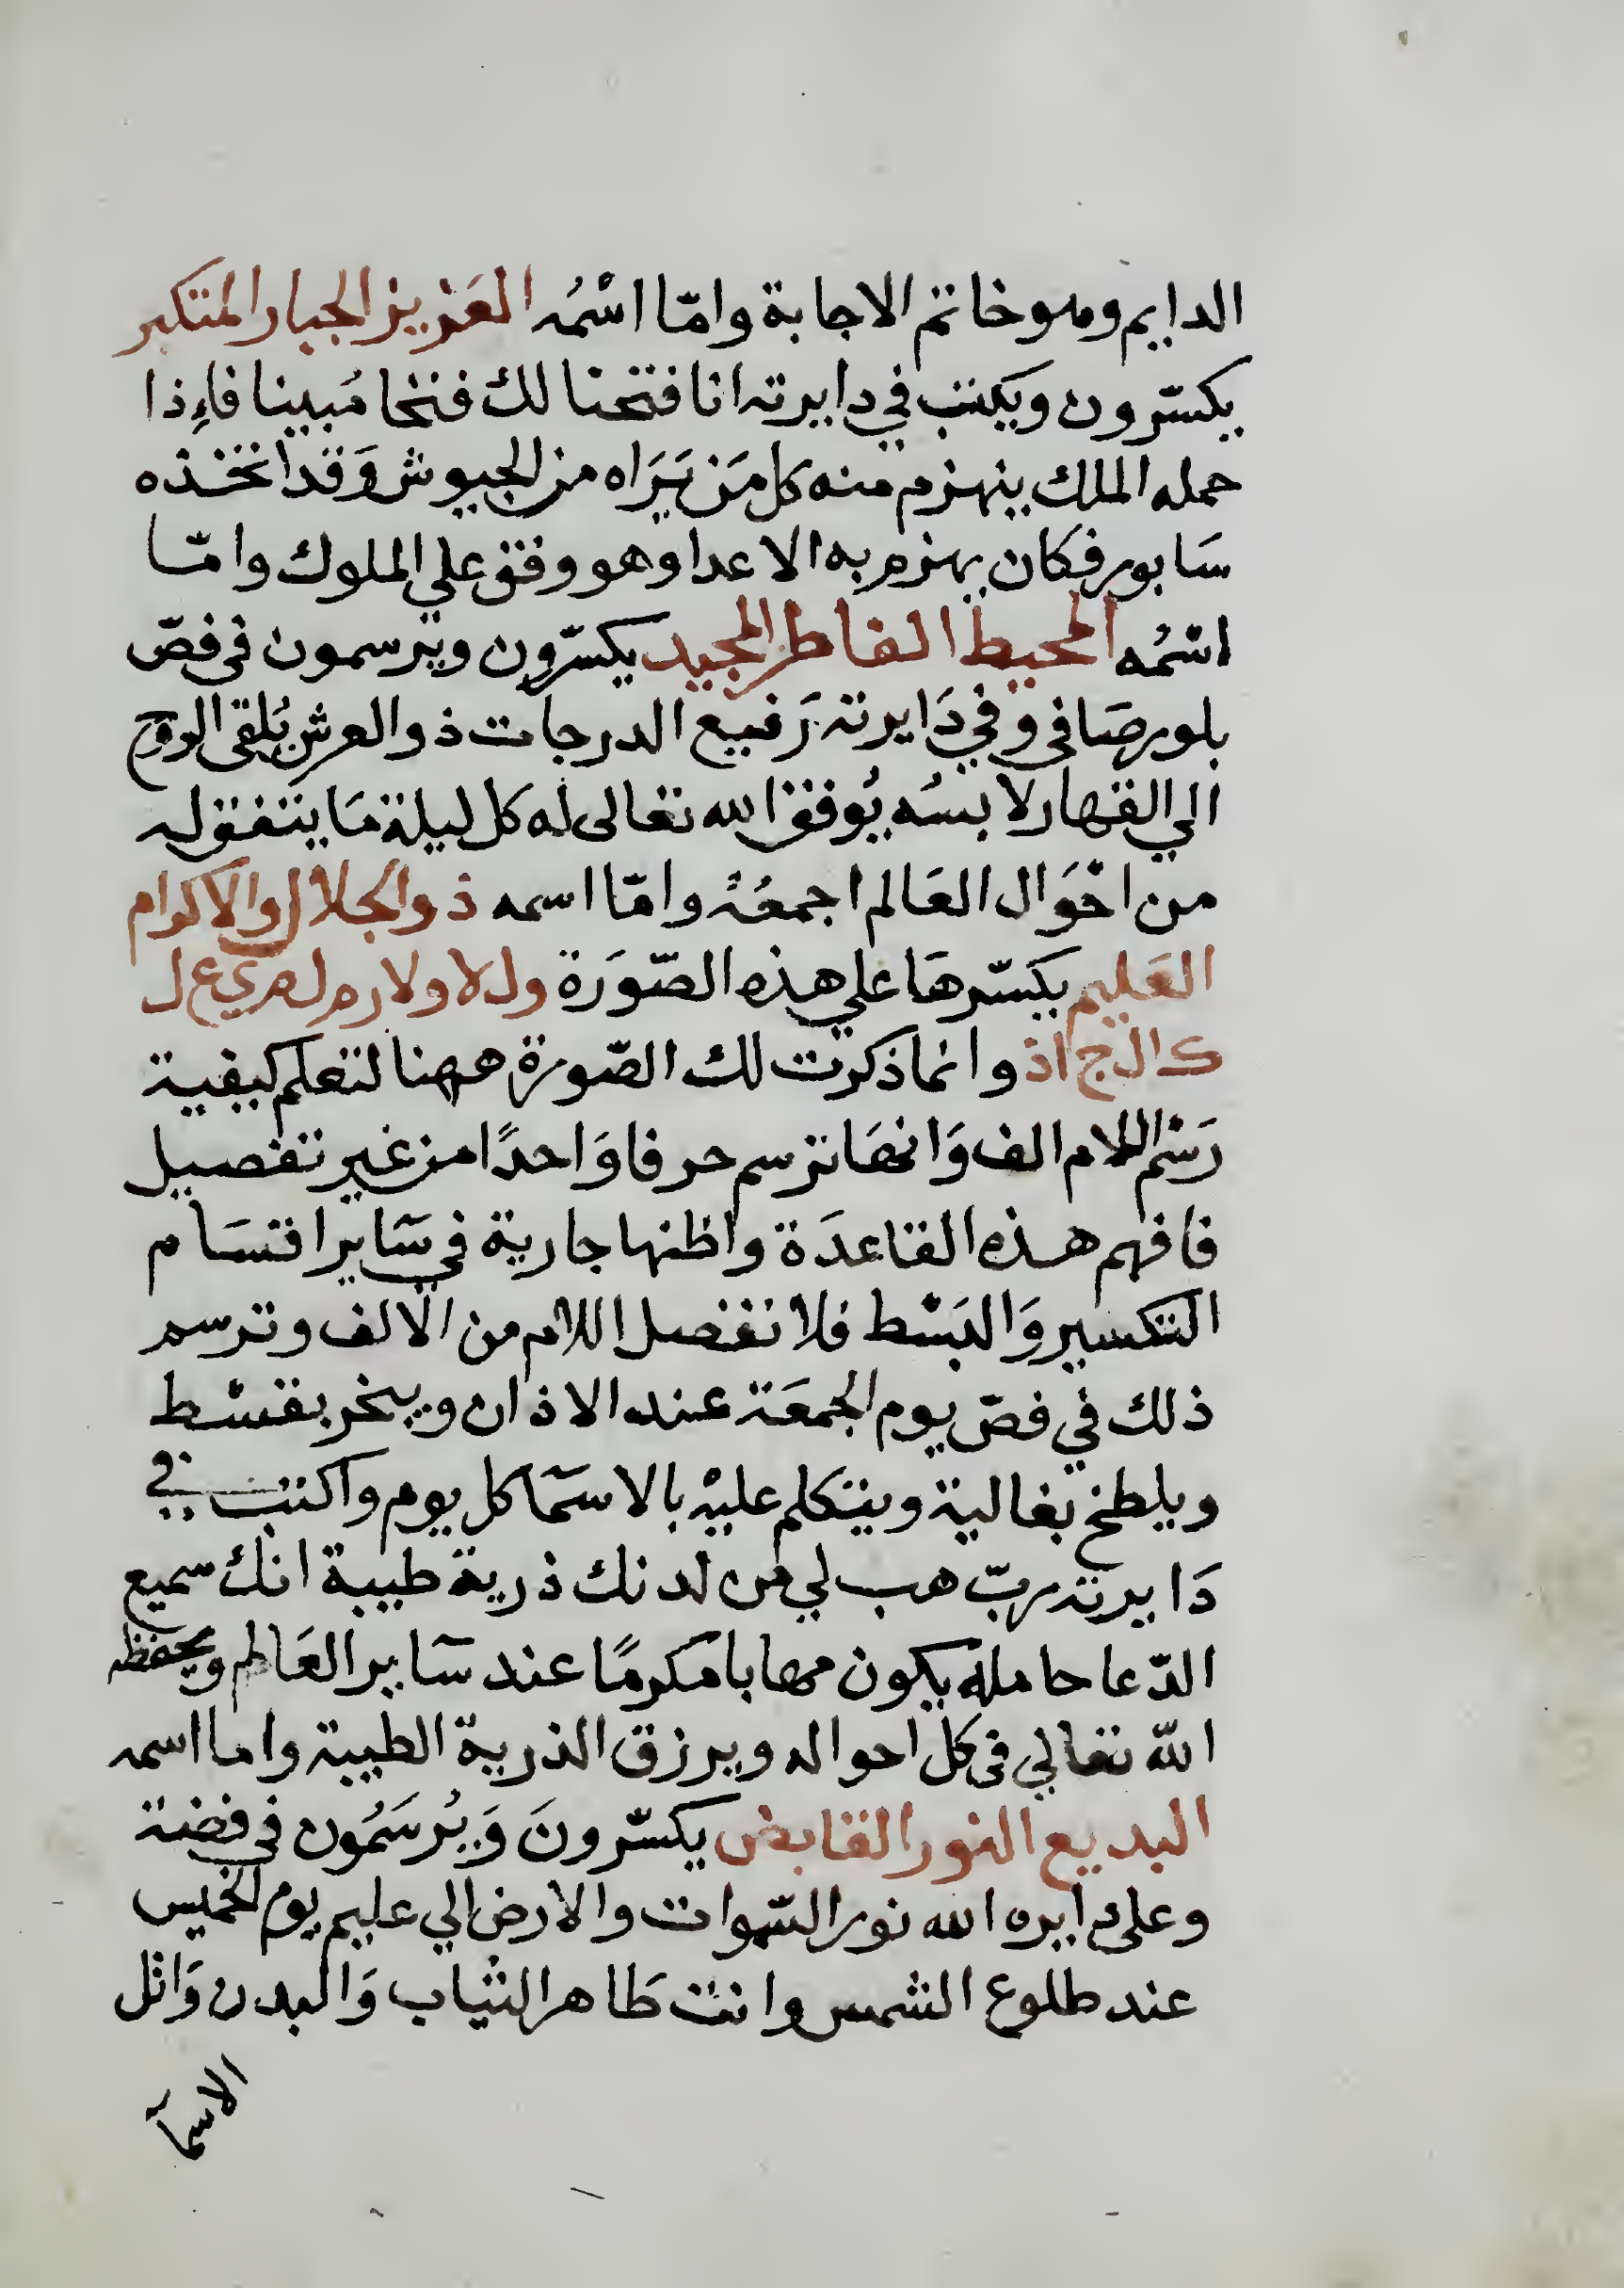 الدايم وهو خاتم الاجابة وامّا اسْمُه العَزيز الجبار المتكبر
يكسّرون ويكتب في دايرته انا فتحنا لك فتحا مُبينا فاءِذا
حمله الملك ينهزم منه كل مَن يَرَاه من الجيوش وَقد اتخذه
سَابور فكان يهزم به الاعدا وهو وفق علي الملوك وامّا
اسْمُه المحيط الفاطر المجيد يكسّرون ويرسمون في فصّ
بلور صَافي وفي دَايرته رَفيع الدرجات ذو العرش يُلقي الروح
الي القهار لابسُه يُوفق الله تعالى له كل ليلة مَا يتفق له
من احْوَال العَالم اجمعُهُ وامّا اسمه ذو الجلال والاكرام
العَليم يكَسّرهَا علي هذه الصّوَرة ول لا ولا ر م ل م ي ع ل
ك ا ل ج ا ذ وانما ذكرت لك الصّورة ههنا لتعلم كيفية
رَسْم اللام الف وَانهَا ترسم حرفا وَاحدًا من غير تفصيل
فافهم هذه القاعدَة واظنها جارية في سَآير اقسَام
التكسير وَالبَسْط فلا تفصل اللام من الالف وترسم
ذلك في فصّ يوم الجمعَة عند الاذان ويبخر بقسْط
ويلطخ بغالية ويتكلم عليْه بالاسمَآ كل يوم واكتب في
دَايرته ربّ هب لي من لدنك ذرية طيبة انك سميع
الدّعا حامله يكون مهابا مكرمًا عند سآير العَالم ويحفظه
اللّه تعالي في كل احواله ويرزق الذرية الطيبة واما اسمه
البديع النور القابض يكسّرونَ وَيُرسَمُون في فضة
وعلي دايره الله نور السّموات والارض الي عليم يوم الخميس
عند طلوع الشمس وانت طَاهر الثياب وَالبدن وَاتل
الاسمآ